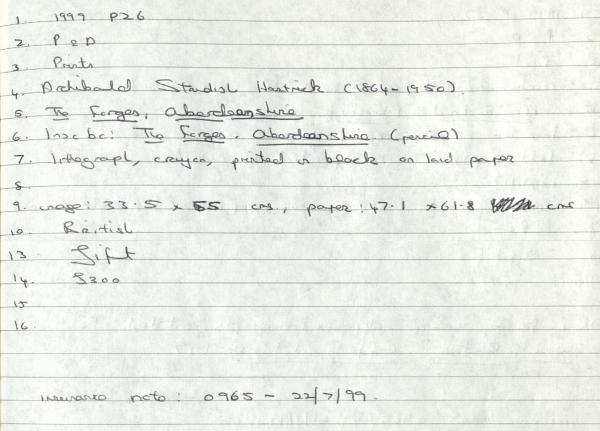 1. 1999 P26
2. P & D
3. Prints
4. Archibald Standish Hartrick (1864-1950).
5. The Forges, Aberdeenshire
6. Insc bc: The Forges. Aberdeenshire (pencil)
7. lithograph, crayon, printed in black on laid paper
8
9. image: 33.5 x 55 cms., paper: 47.1 x 61.8 cms
10. British
13. Gift
14. $300
15
16.
insurance note: 0965 - 22/7/99.